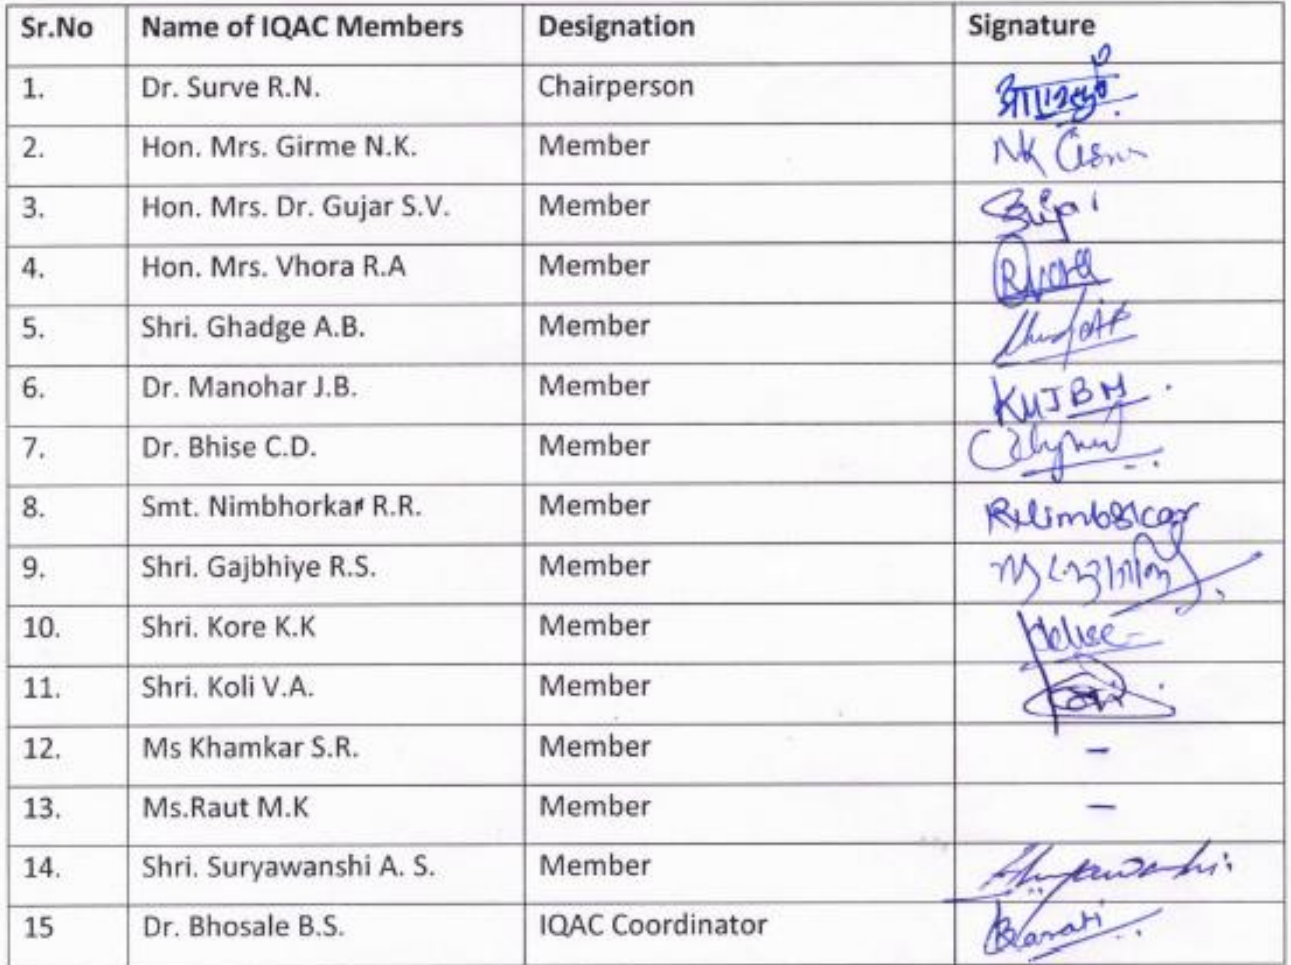 Sr.No Name of IQAC Members Designation Signature
1. Dr. Surve R.N. Chairperson
2. Hon. Mrs. Girme N.K. Member NK
3. Hon. Mrs. Dr. Gujar S.V. Member
4. Hon. Mrs. Vhora R.A Member
5. Shri. Ghadge A.B. Member
6. Dr. Manohar J.B. Member
7. Dr. Bhise C.D. Member
8. Smt. Nimbhorkar R.R. Member
9. Shri. Gajbhiye R.S. Member
10. Shri. Kore K.K Member
11. Shri. Koli V.A. Member
12. Ms Khamkar S.R. Member –
13. Ms.Raut M.K Member –
14. Shri. Suryawanshi A. S. Member
15 Dr. Bhosale B.S. IQAC Coordinator